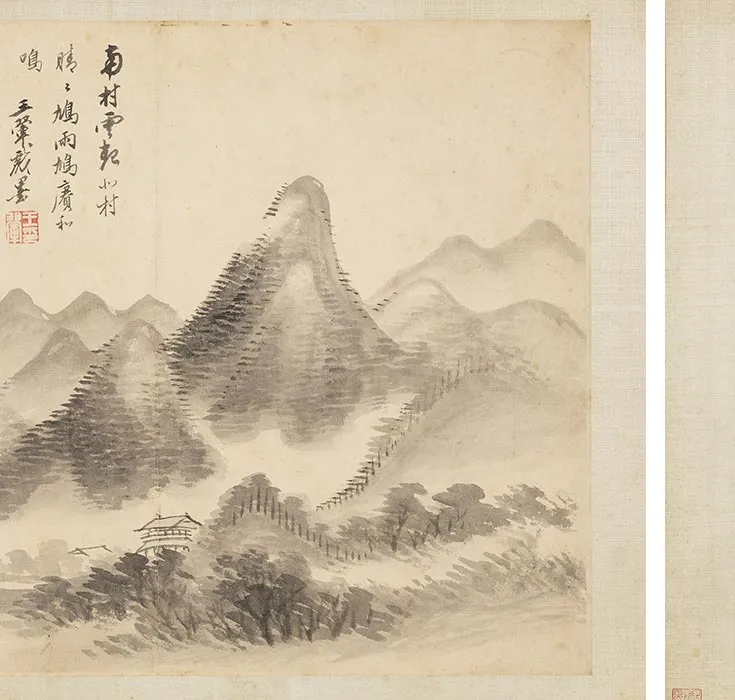 南村雲起北村
晴〻鳩雨鳩賡和
鳴
王翬戲墨